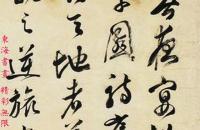 春夜宴桃
李園詩序
天地者萬
之逆旅
東海書畫 精彩無限